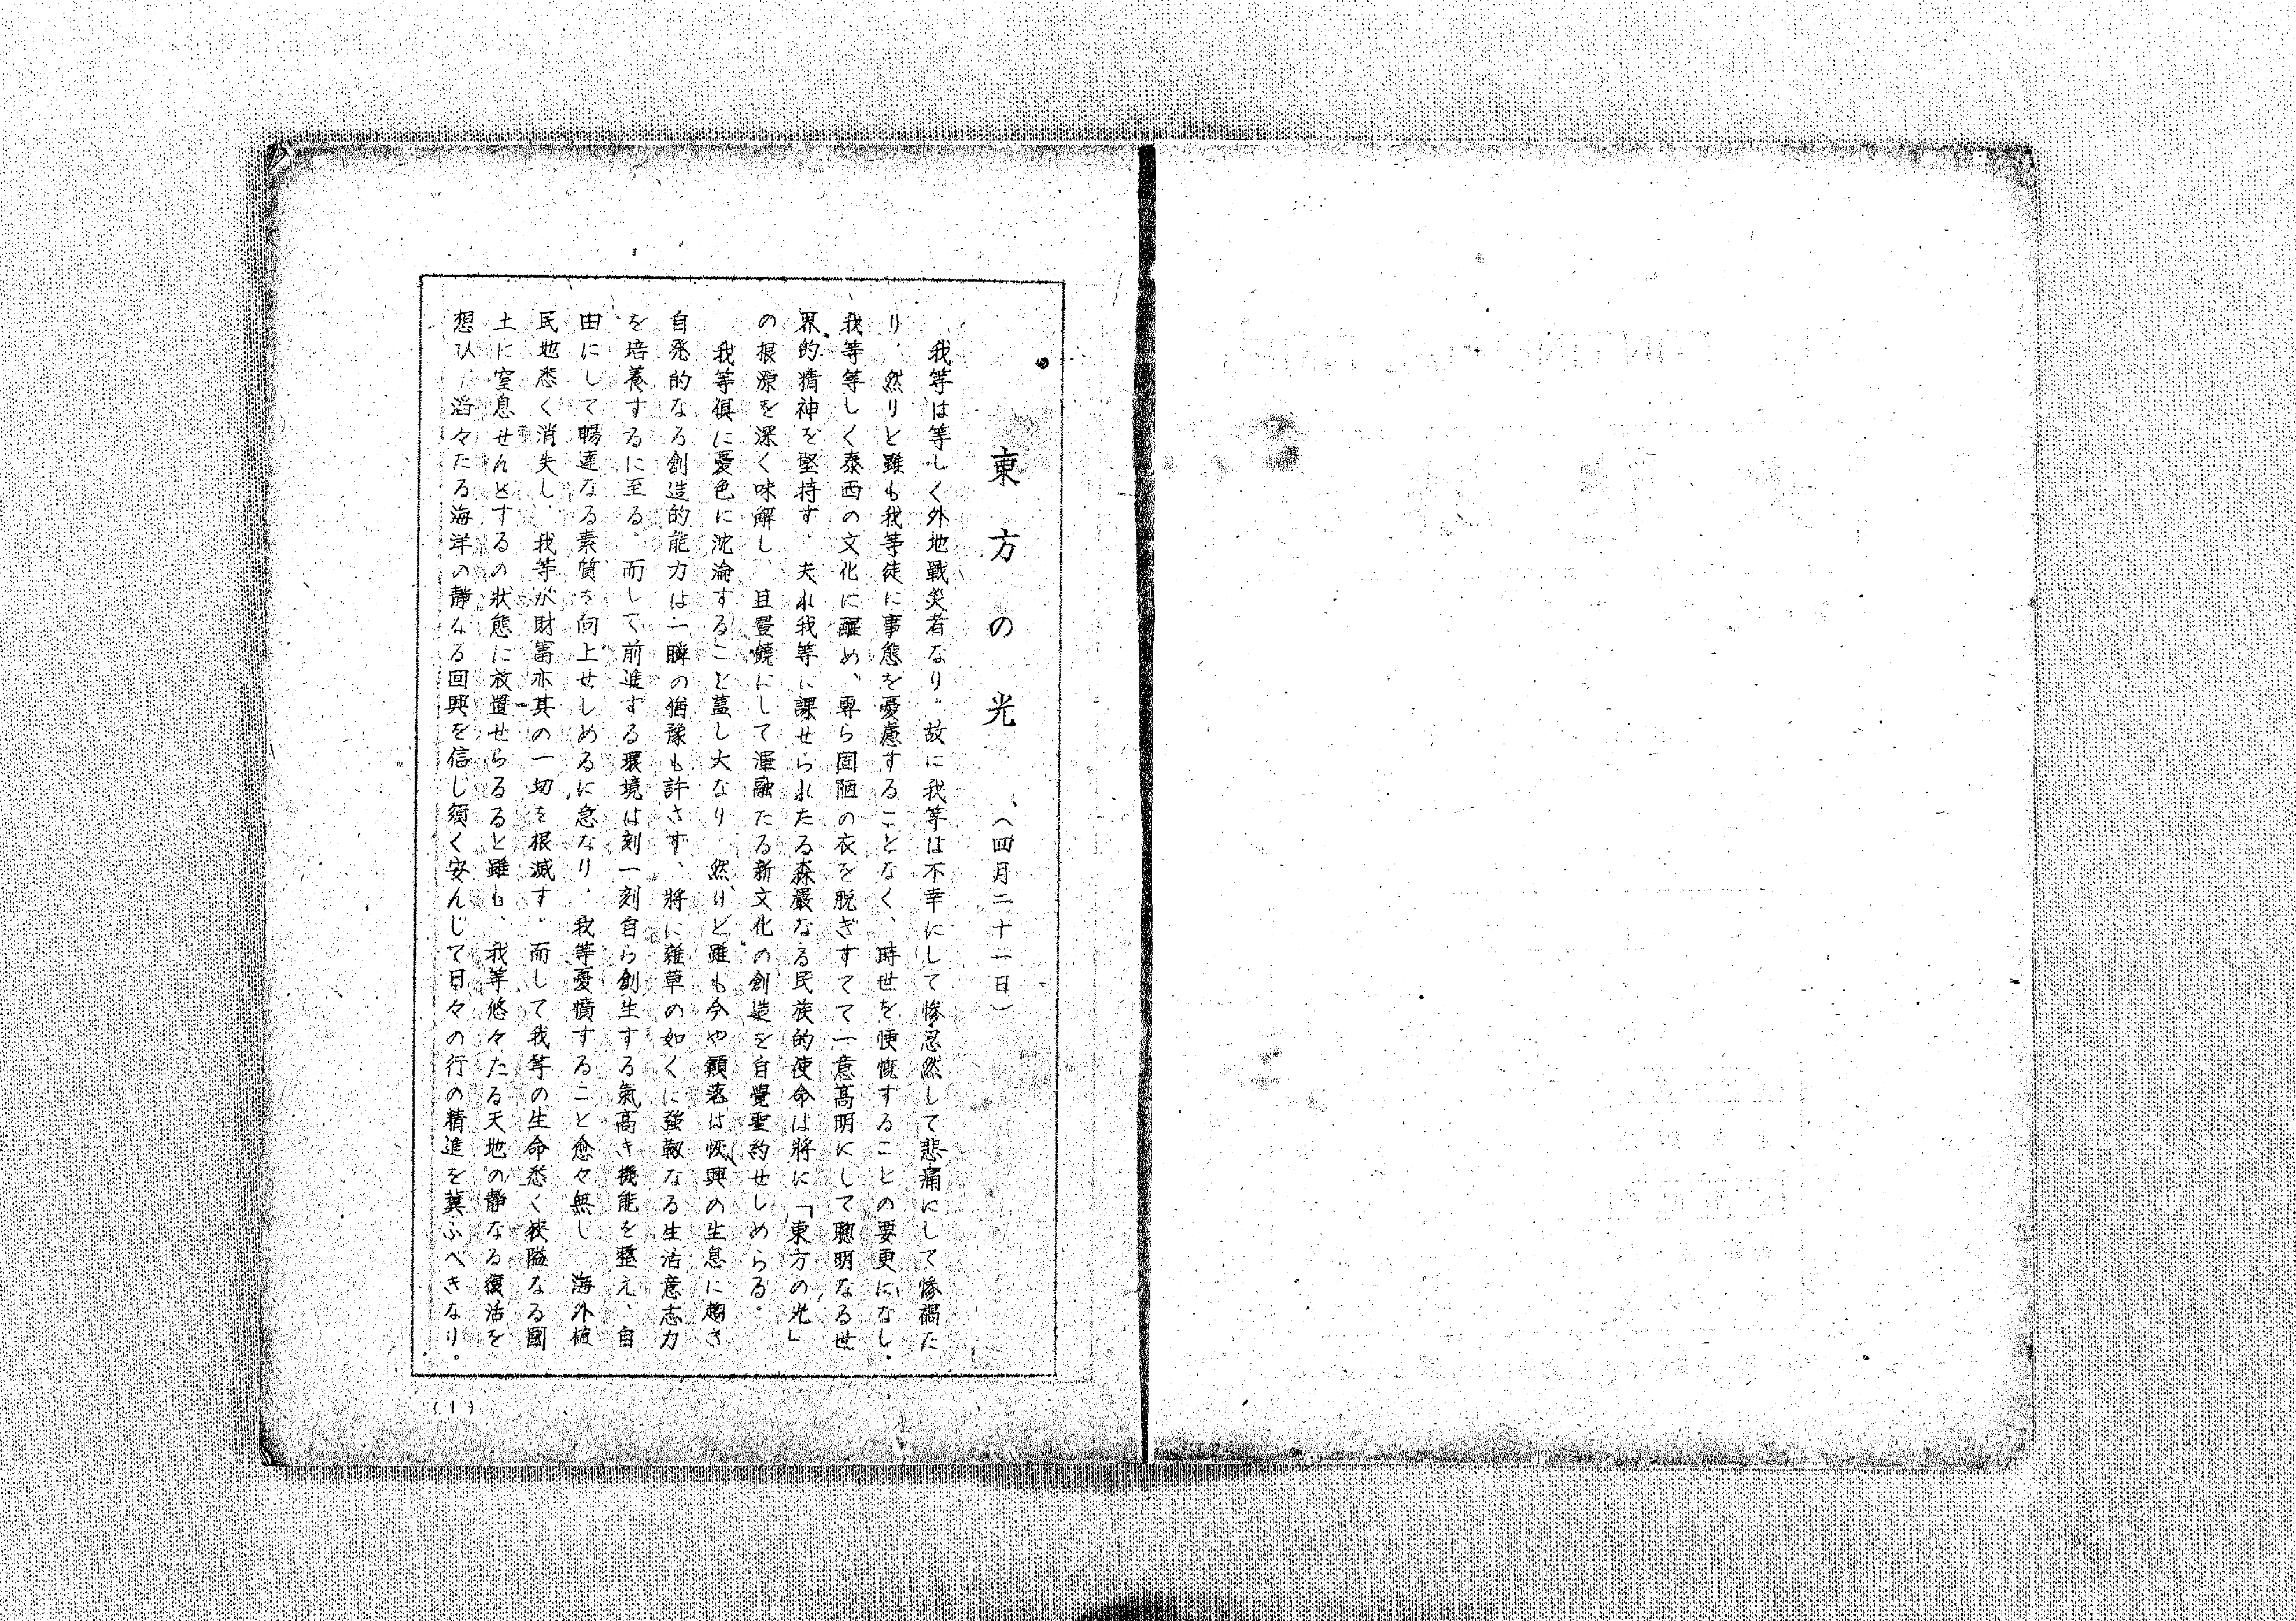 東方の光 (四月二十一日)
我等は等しく外地戰災者なり。故に我等は不幸にして惨忍然して悲痛にして惨禍た
り。然りと雖も我等徒に事態を憂慮することなく、時世を慷慨することの要更になし。
我等等しく泰西の文化に醒め、専ら固陋の衣を脱ぎすてて一意高明にして聰明なる世
界的精神を堅持す。夫れ我等に課せられたる森嚴なる民族的使命は將に「東方の光」
の根源を深く味解し、且豐饒にして渾融たる新文化の創造を自覺聖約せしめらる。
我等俱に憂色に沈淪すること蓋し大なり。然りと雖も今や顚落は恢興の生息に趨さ
自発的なる創造的能力は一瞬の猶豫も許さず、將に雜草の如くに強靱なる生活意志力
を培養するに至る。而して前進する環境は刻一刻自ら創生する氣高き機能を整え、自
由にして暢達なる素質を向上せしめるに急なり。我等憂憤すること愈々無し 海外植
民地悉く消失し、我等が財富亦其の一切を根滅す。而して我等の生命悉く狹隘なる國
土に窒息せんとするの狀態に放置せらるると雖も、我等悠々たる天地の靜なる復活を
想ひ、滔々たる海洋の靜なる回興を信じ須く安んじて日々の行の精進を冀ふべきなり。
(1)